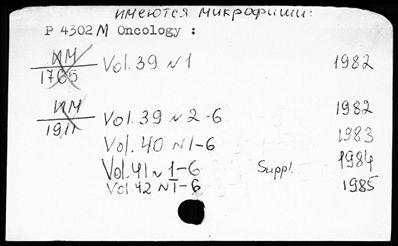 имеются микрофиши:
P 4302 M Oncology :
ИМ
1765 Vol. 39 N 1 1982
ИМ
1911 Vol. 39 N 2-6 1982
Vol. 40 N 1-6 1983
Vol. 41 N 1-6 Suppl. 1984
Vol 42 N 1-6 1985